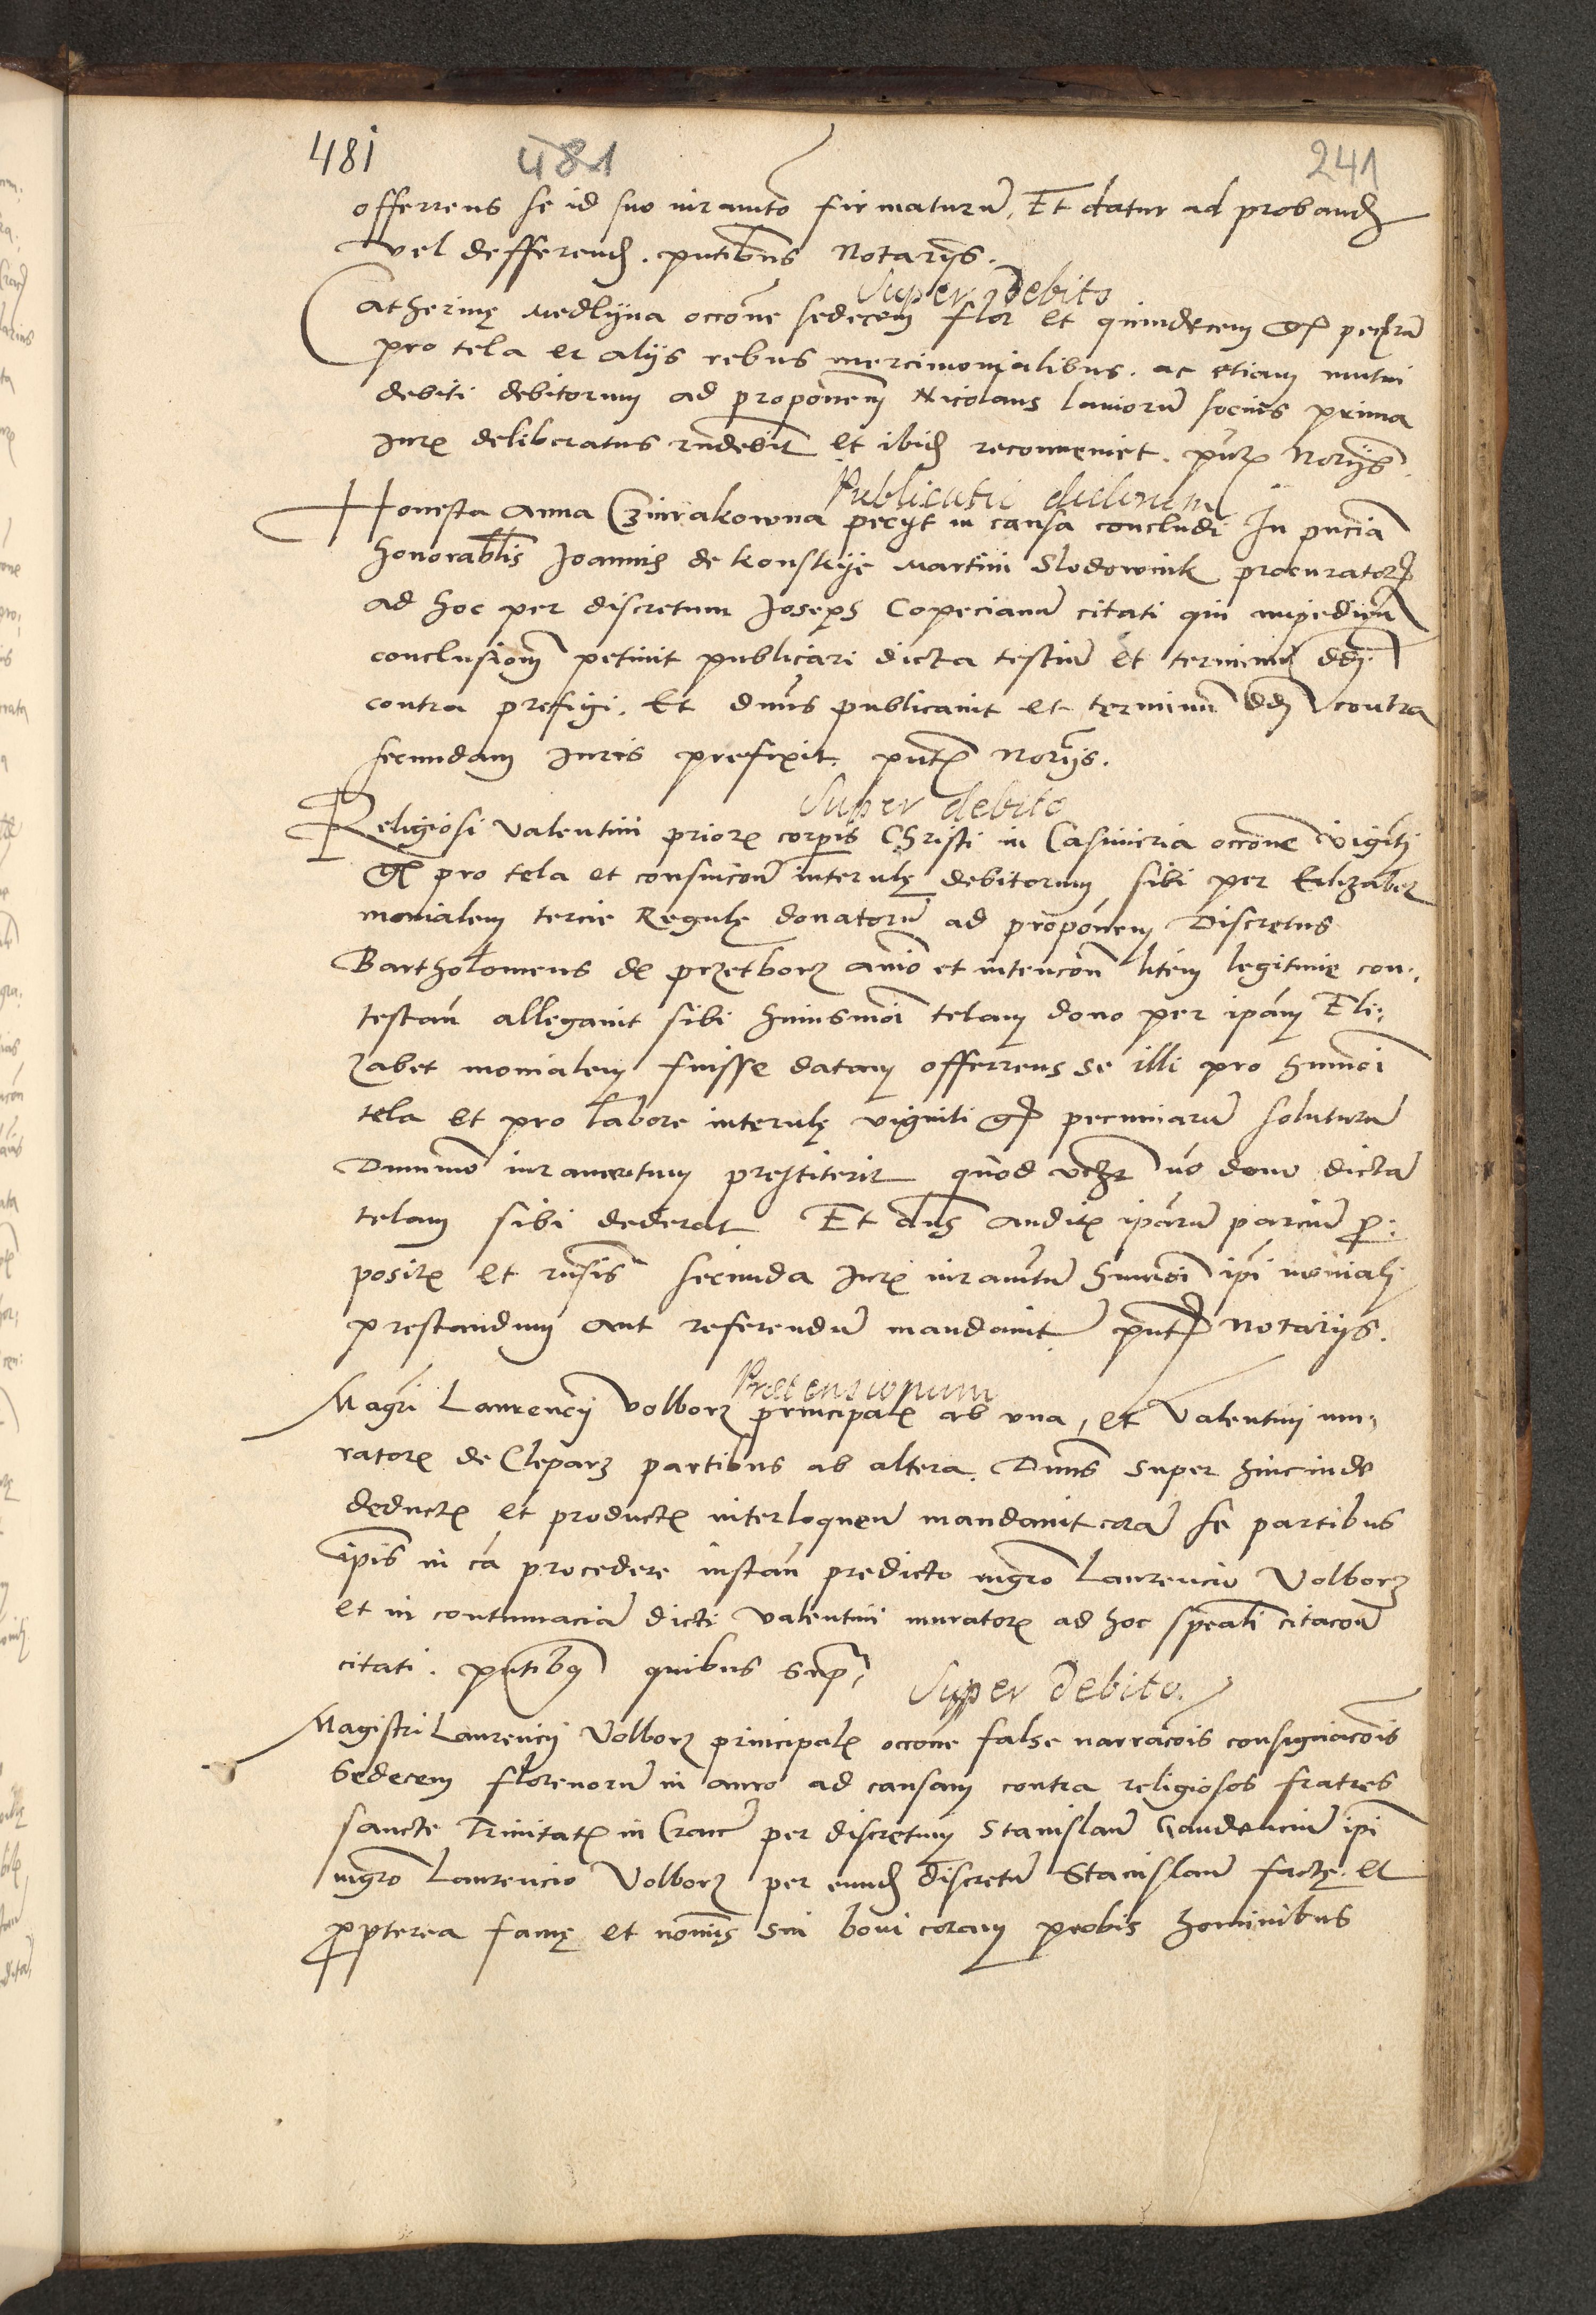 481 481 241
offerrens se id suo iuramto firmaturu, Et datur ad proband
vel defferend. pntibus Notarijs.
Super debito
Catherinę Medlyna occone sedecem flor et quindecem gr pecuniaru
pro tela et alijs rebus mercimonialibus. ac etiam mutui
debiti debitorum ad proponem Nicolaus laniorũ socius prima
Juris deliberatus rndebit et ibid reconveniet. pntib Norijs.
Publicatio dictorum
Honesta Anna Czwrakowna pecijt in causa concludi In pnciã
honorabilis Joannis de Konskije Martini Slodownik procurator
ad hoc per discretum Joseph Copecianũ citati qui impediens
conclusionem petiuit publicari dicta testiũ et terminũ dd.
contra prefigi. Et dnus publicauit et terminũ dd contra
secundam Juris prefixit. pntib Norijs.
Super debito
Religiosi Valentini prioris corpis Christi in Casimiria occone viginti
gr pro tela et consuicone interulę debitorum sibi per Elizabet
monialem tercie Regulę donatorũ ad proponem Discretus
Bartholomeus de przetborz animo et intencone litem legitimę con„
testan allegauit sibi huiusmoi telam dono per ipam Eli„
zabet monialem fuisse datam offerrens se illi pro hmoi
tela et pro labore interulę viginti gr pecuniarũ soluturũ
Dummo iuramentum prestiterit quod vtiqz no dono dictã
telam sibi dederat Et dns auditis iparũ parciũ pro„
positis et rnsis secunda Juris iuramtum hmoi ipi moniali
prestandum aut referendũ mandauit pntib notarijs.
Pretensionum
Magri Laurencij Volborz principalis ab vna, et Valentini mu„
ratoris de Cleparz partibus ab altera. Dnus super hincinde
deductis et productis interloquen mandauit corã se partibus
ipis in cã procedere instan predicto mgro Laurencio Volborz
et in contumaciã dicti Valentini muratoris ad hoc speciali citacone
citati. pntibus quibus sup„
Super debito.
Magistri Laurencij Volborz principalis occone false narracois consignacois
Sedecem florenorũ in auro ad causam contra religiosos fratres
sancte Trinitatis in Crac per discretum Stanislaũ Gaudenciũ ipi
mgro Laurencio Volborz per eund discretũ Stanislaũ factę. et
propterea famę et nominis sui boni coram probis hominibus